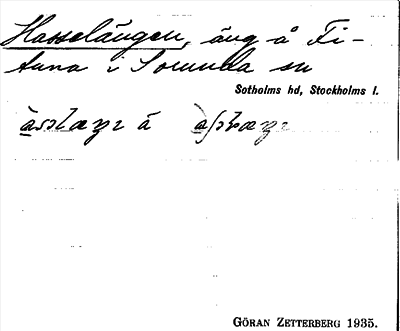 Hasselängen, äng å Fi-
tuna i Sorunda sn
Sotholms hd, Stockholms l.
á
GÖRAN ZETTERBERG 1935.